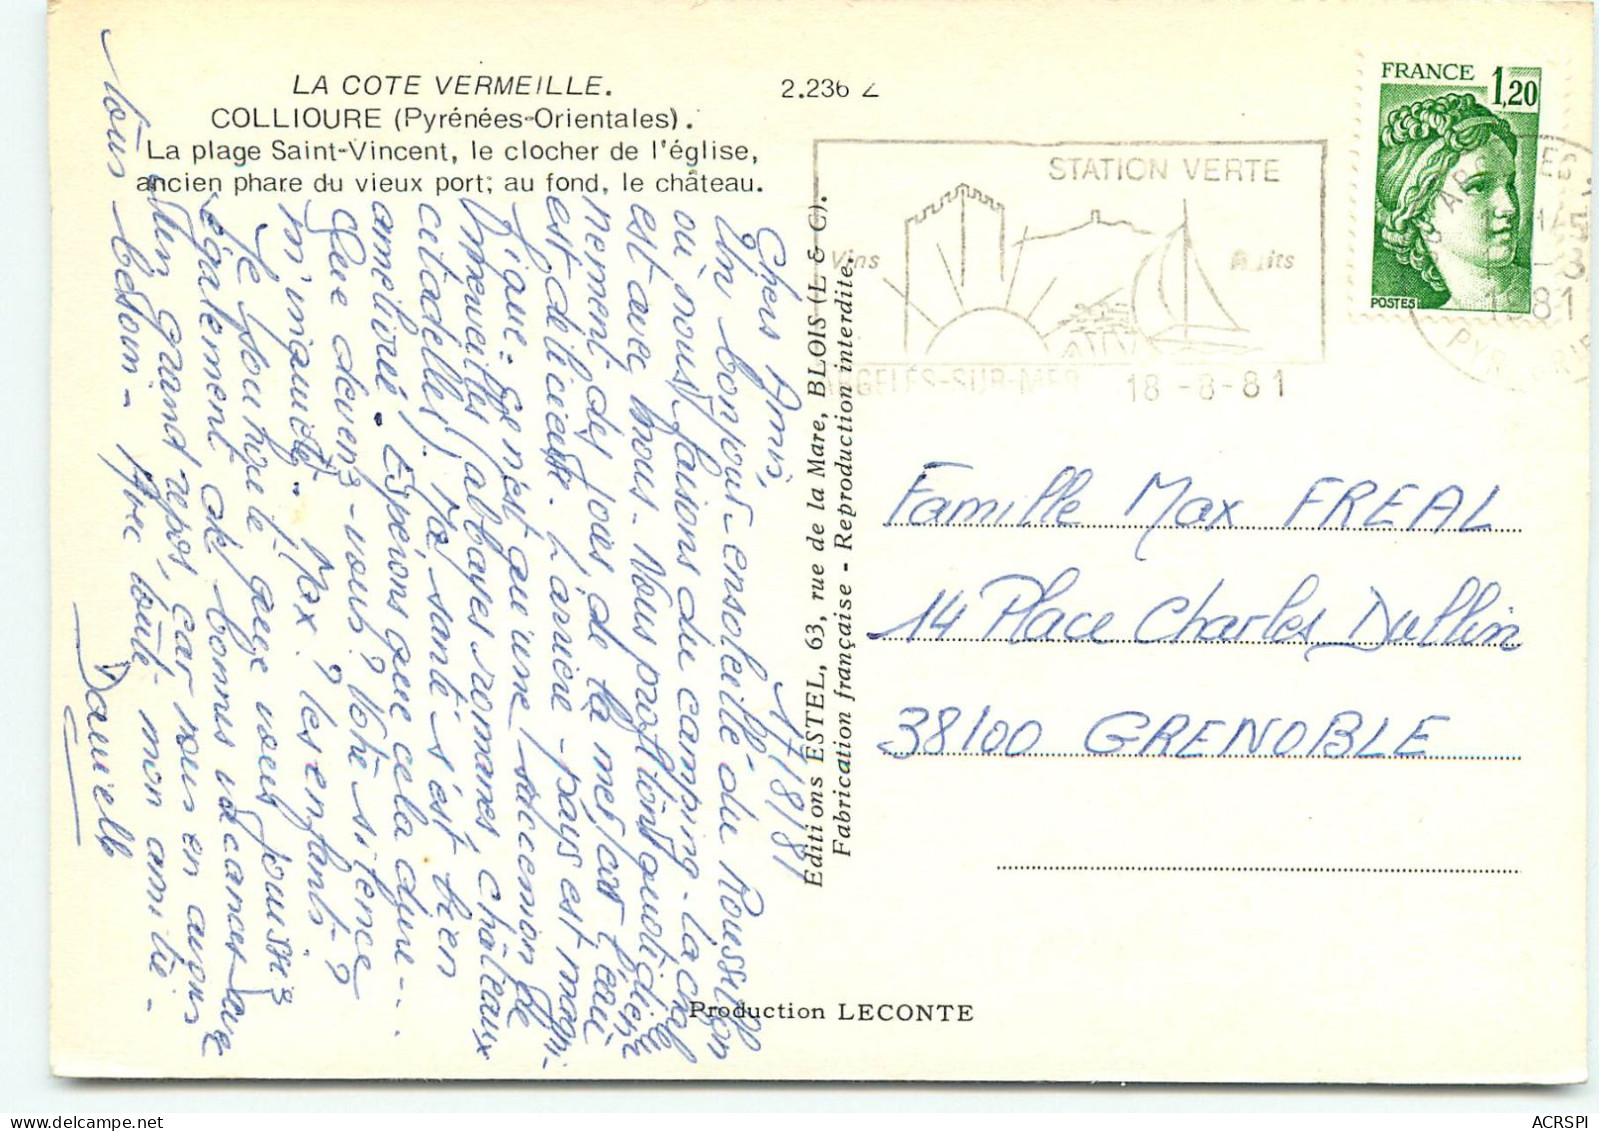 LA COTE VERMEILLE.
COLLIOURE (Pyrénées-Orientales).
La plage Saint-Vincent, le clocher de l'église,
ancien phare du vieux port; au fond, le château.
2.236 Z
FRANCE 1,20
POSTES
STATION VERTE
Vins
ARGELES-SUR-MER 18-8-81
1981
Editions ESTEL, 63, rue de la Mare, BLOIS (L & C).
Fabrication française - Reproduction interdite.
17/8/81
Chers Amis,
Un bonjour ensoleillé du Roussillon
où nous faisons du camping. Le chat
est avec nous. Nous profitons quotidien-
nement des joies de la mer, car l'eau
est délicieuse. L'arrière-pays est magni-
fique. Ce n'est qu'une succession de
merveilles (abbayes romanes, châteaux
citadelles). Ma santé s'est bien
améliorée. Espérons que cela dure...
Que devenez-vous? Votre silence
m'inquiète. Max? les enfants?
Je souhaite que vous puissiez
également de bonnes vacances
un grand repos, car vous en avez
tous besoin - Avec toute mon amitié -
Danielle
Famille Max FREAL
14 Place Charles Dullin
38100 GRENOBLE
Production LECONTE
ACRSPI